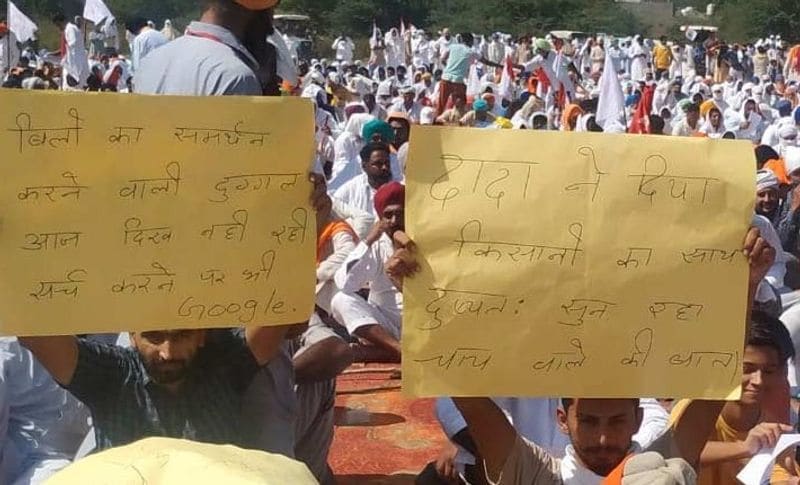 बिलों का समर्थन
करने वाली दुग्गल
आज दिख नही रही
सर्च करने पर भी
Google.
दादा ने दिया
किसानो का साथ
दुष्यत: सुन रहा
चाय वाले की बात